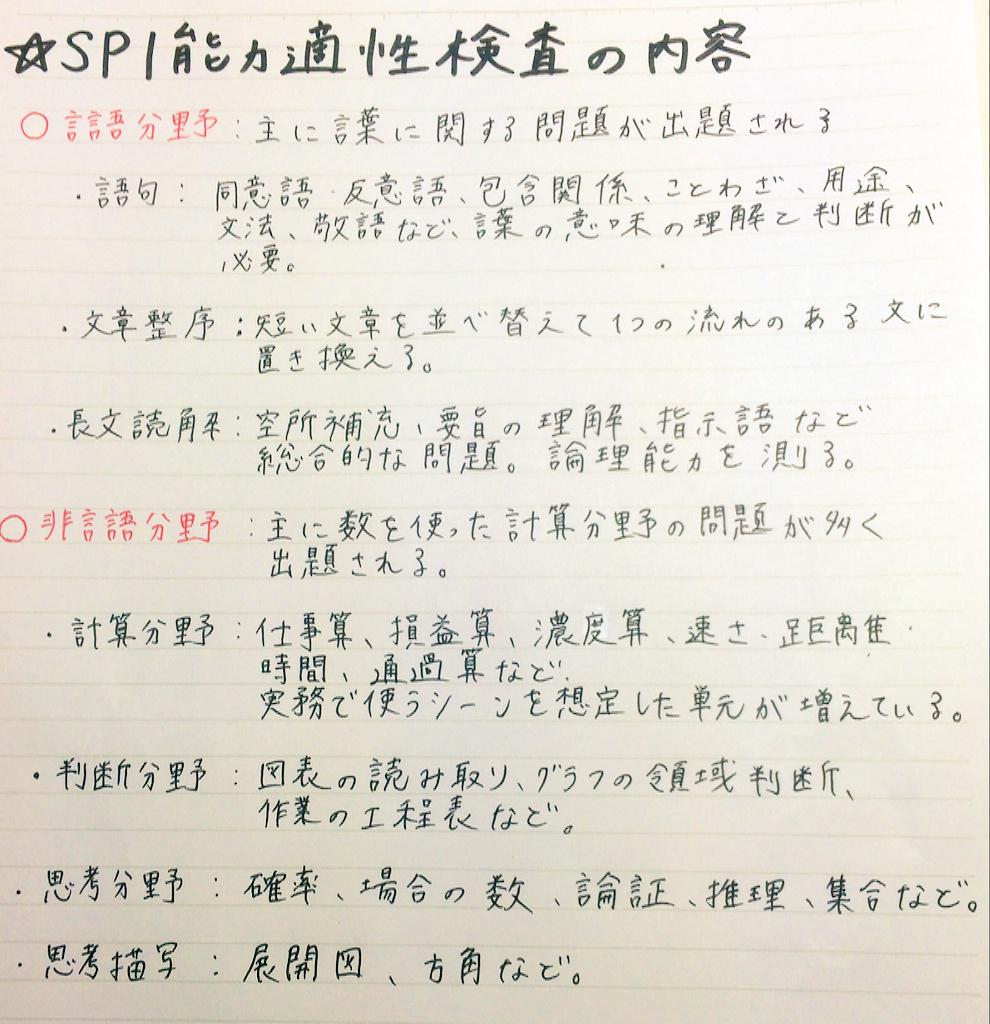 ☆SPI能力適性検査の内容
○言語分野：主に言葉に関する問題が出題される
・語句：同意語・反意語、包含関係、ことわざ、用途、
文法、敬語など、言葉の意味の理解と判断が
必要。
・文章整序：短い文章を並べ替えて1つの流れのある文に
置き換える。
・長文読解：空所補充、要旨の理解、指示語など
総合的な問題。論理能力を測る。
○非言語分野：主に数を使った計算分野の問題が多く
出題される。
・計算分野：仕事算、損益算、濃度算、速さ・距離・
時間、通過算など.
実務で使うシーンを想定した単元が増えている。
・判断分野：図表の読み取り、グラフの領域判断、
作業の工程表など。
・思考分野：確率、場合の数、論証、推理、集合など。
・思考描写：展開図、方角など。